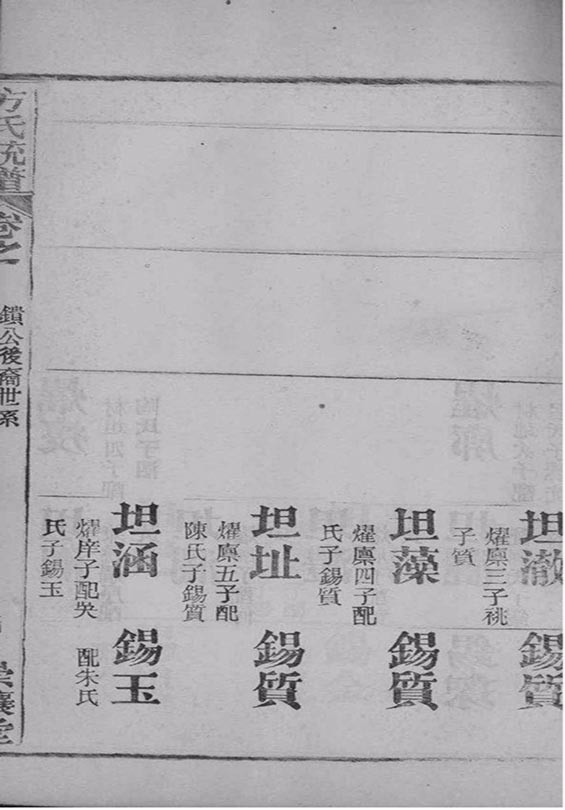 坦澈
燿廩三子祧
子質
錫質
坦藻
燿廩四子配
氏子錫質
錫質
坦址
燿廩五子配
陳氏子錫質
錫質
坦涵
燿庠子配吳
氏子錫玉
錫玉
配朱氏
方氏統譜
卷之
公後裔世系